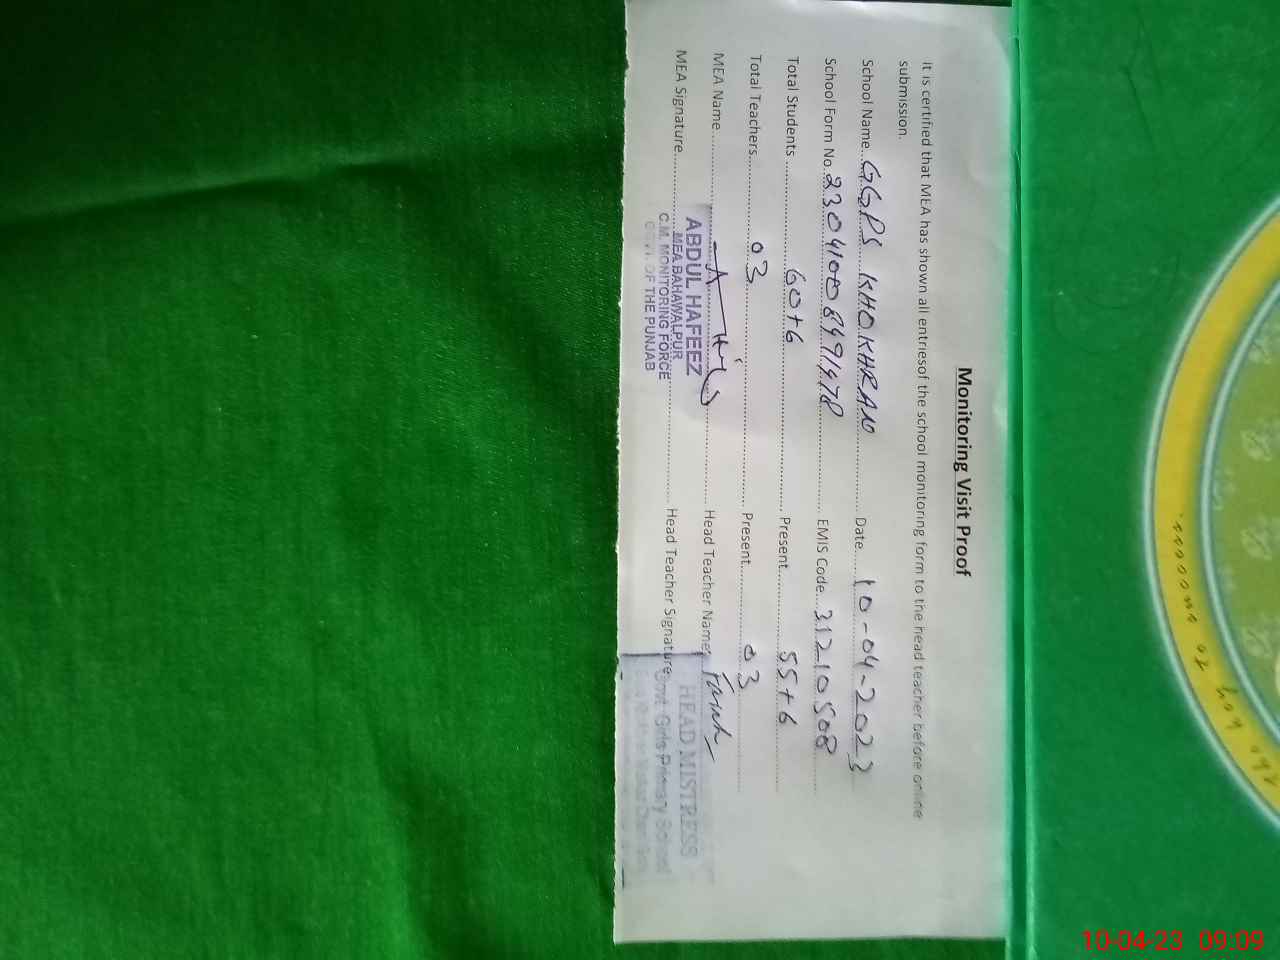 Monitoring Visit Proof
It is certified that MEA has shown all entriesof the school monitoring form to the head teacher before online
submission.
School Name...GGPS KHOKHRAN Date...10-04-2023
School Form No. EMIS Code...31210508
Total Students...60+6 Present...55+6
Total Teachers...03 Present...03
MEA Name... Head Teacher Name:
MEA Signature... Head Teacher Signature
ABDUL HAFEEZ
MEA BAHAWALPUR
C.M. MONITORING FORCE
GOVT. OF THE PUNJAB
HEAD MISTRESS
Govt. Girls Primary School
10-04-23 09:09